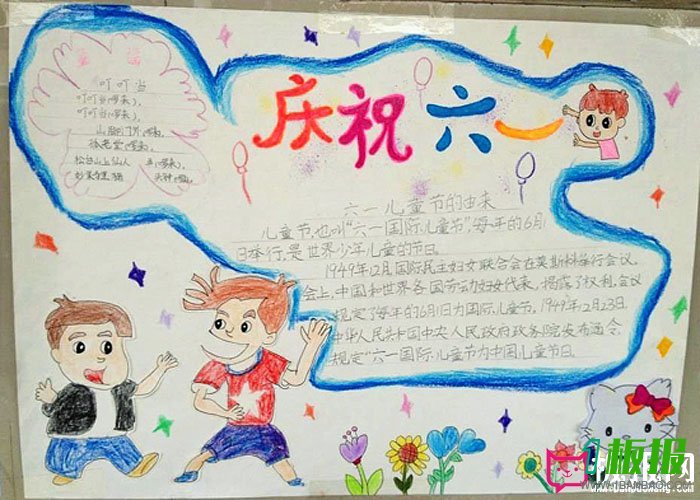 童谣
叮叮当
叮叮当(啰来),
叮叮当(啰来),
庆祝六一
六一儿童节的由来
儿童节,也叫“六一国际儿童节”,每年的6月
日举行,是世界少年儿童的节日。
1949年12月国际民主妇女联合会在莫斯科举行会议,
会上,中国和世界各国劳动妇女代表,揭露了权利,会议
规定了每年的6月1日为国际儿童节,1949年12月23日
中华人民共和国中央人民政府政务院发布通令,
规定“六一国际儿童节为中国儿童节日
板报网
WWW.1BANBAO.COM